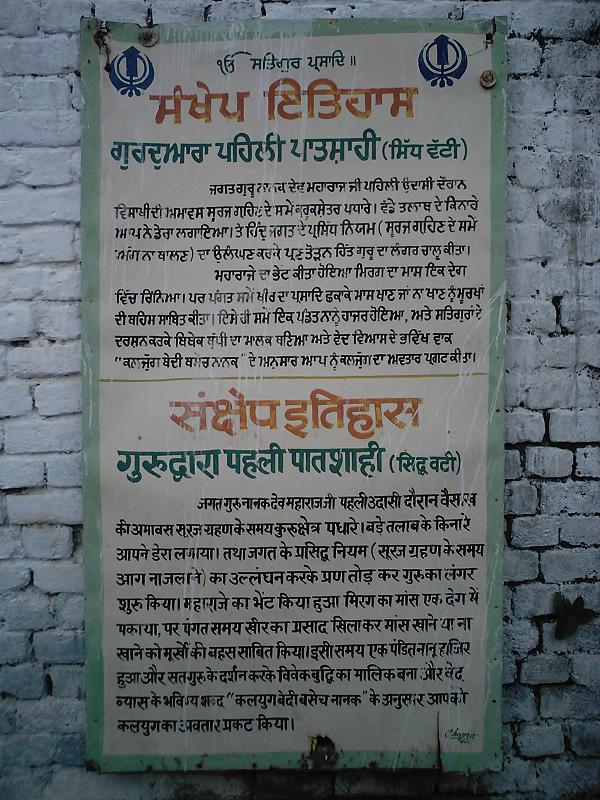 ੴ ਸਤਿਗੁਰ ਪ੍ਰਸਾਦਿ॥
ਸੰਖੇਪ ਇਤਿਹਾਸ
ਗੁਰਦੁਆਰਾ ਪਹਿਲੀ ਪਾਤਸ਼ਾਹੀ (ਸਿੱਧ ਵੱਟੀ)
ਜਗਤ ਗੁਰੂ ਨਾਨਕ ਦੇਵ ਮਹਾਰਾਜ ਜੀ ਪਹਿਲੀ ਉਦਾਸੀ ਦੌਰਾਨ
ਵਿਸਾਖੀ ਦੀ ਅਮਾਵਸ ਸੂਰਜ ਗ੍ਰਹਿਣ ਦੇ ਸਮੇਂ ਕੁਰੂਕਸ਼ੇਤਰ ਪਧਾਰੇ। ਵੱਡੇ ਤਲਾਬ ਦੇ ਕਿਨਾਰੇ
ਆਪ ਨੇ ਡੇਰਾ ਲਗਾਇਆ। ਤੇ ਹਿੰਦੂ ਜਗਤ ਦੇ ਪ੍ਰਸਿੱਧ ਨਿਯਮ (ਸੂਰਜ ਗ੍ਰਹਿਣ ਦੇ ਸਮੇਂ
ਅੱਗ ਨਾ ਬਾਲਣ) ਦਾ ਉਲੰਘਣ ਕਰਕੇ ਪ੍ਰਣ ਤੋੜਨ ਹਿੱਤ ਗੁਰੂ ਦਾ ਲੰਗਰ ਚਾਲੂ ਕੀਤਾ।
ਮਹਾਰਾਜੇ ਦਾ ਭੇਟ ਕੀਤਾ ਹੋਇਆ ਮਿਰਗ ਦਾ ਮਾਸ ਇਕ ਦੇਗ
ਵਿੱਚ ਰਿੰਨਿਆ। ਪਰ ਪੰਗਤ ਸਮੇਂ ਖੀਰ ਦਾ ਪ੍ਰਸਾਦਿ ਛਕਾਕੇ ਮਾਸ ਖਾਣ ਜਾਂ ਨਾ ਖਾਣ ਨੂੰ ਮੂਰਖਾਂ
ਦੀ ਬਹਿਸ ਸਾਬਿਤ ਕੀਤਾ। ਇਸੇ ਹੀ ਸਮੇਂ ਇਕ ਪੰਡਿਤ ਨਾਨੂੰ ਹਾਜਰ ਹੋਇਆ, ਅਤੇ ਸਤਿਗੁਰਾਂ ਦੇ
ਦਰਸ਼ਨ ਕਰਕੇ ਬਿਬੇਕ ਬੁੱਧੀ ਦਾ ਮਾਲਕ ਬਣਿਆ ਅਤੇ ਵੇਦ ਵਿਆਸ ਦੇ ਭਵਿੱਖ ਵਾਕ
"ਕਲਜੁੱਗ ਬੇਦੀ ਬਸੇਚ ਨਾਨਕ" ਦੇ ਅਨੁਸਾਰ ਆਪ ਨੂੰ ਕਲਜੁੱਗ ਦਾ ਅਵਤਾਰ ਪ੍ਰਗਟ ਕੀਤਾ।
संक्षेप इतिहास
गुरुद्वारा पहली पातशाही (सिद्ध वटी)
जगत गुरु नानक देव महाराज जी पहली उदासी दौरान वैसाख
की अमावस सूरज ग्रहण के समय कुरुक्षेत्र पधारे। बड़े तलाब के किनारे
आपने डेरा लगाया। तथा जगत के प्रसिद्ध नियम (सूरज ग्रहण के समय
आग ना जलाने) का उल्लंघन करके प्रण तोड़ कर गुरु का लंगर
शुरू किया। महाराजे का भेंट किया हुआ मिरग का मांस एक देग में
पकाया, पर पंगत समय खीर का प्रसाद खिलाकर मांस खाने या ना
खाने को मूर्खों की बहस साबित किया। इसी समय एक पंडित नानू हाजिर
हुआ और सतगुरु के दर्शन करके विवेक बुद्धि का मालिक बना और वेद
व्यास के भविष्य शब्द "कलयुग बेदी बसेच नानक" के अनुसार आपको
कलयुग का अवतार प्रकट किया।